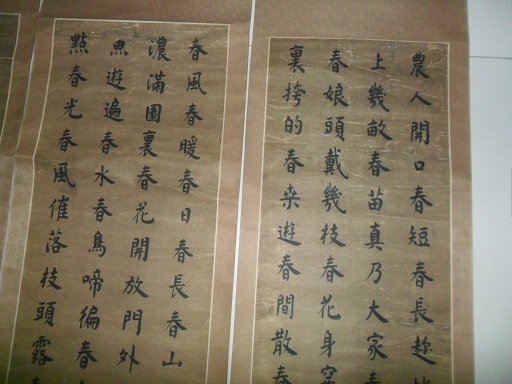 農人開口春短春長趁
上幾畝春苗真乃大家春
春娘頭戴幾枝春花身穿
裏挎的春桒遊春間散春
春風春暖春日春長春山
濃滿園裏春花開放門外
魚遊遍春水春鳥啼徧春
點春光春風催落枝頭露春